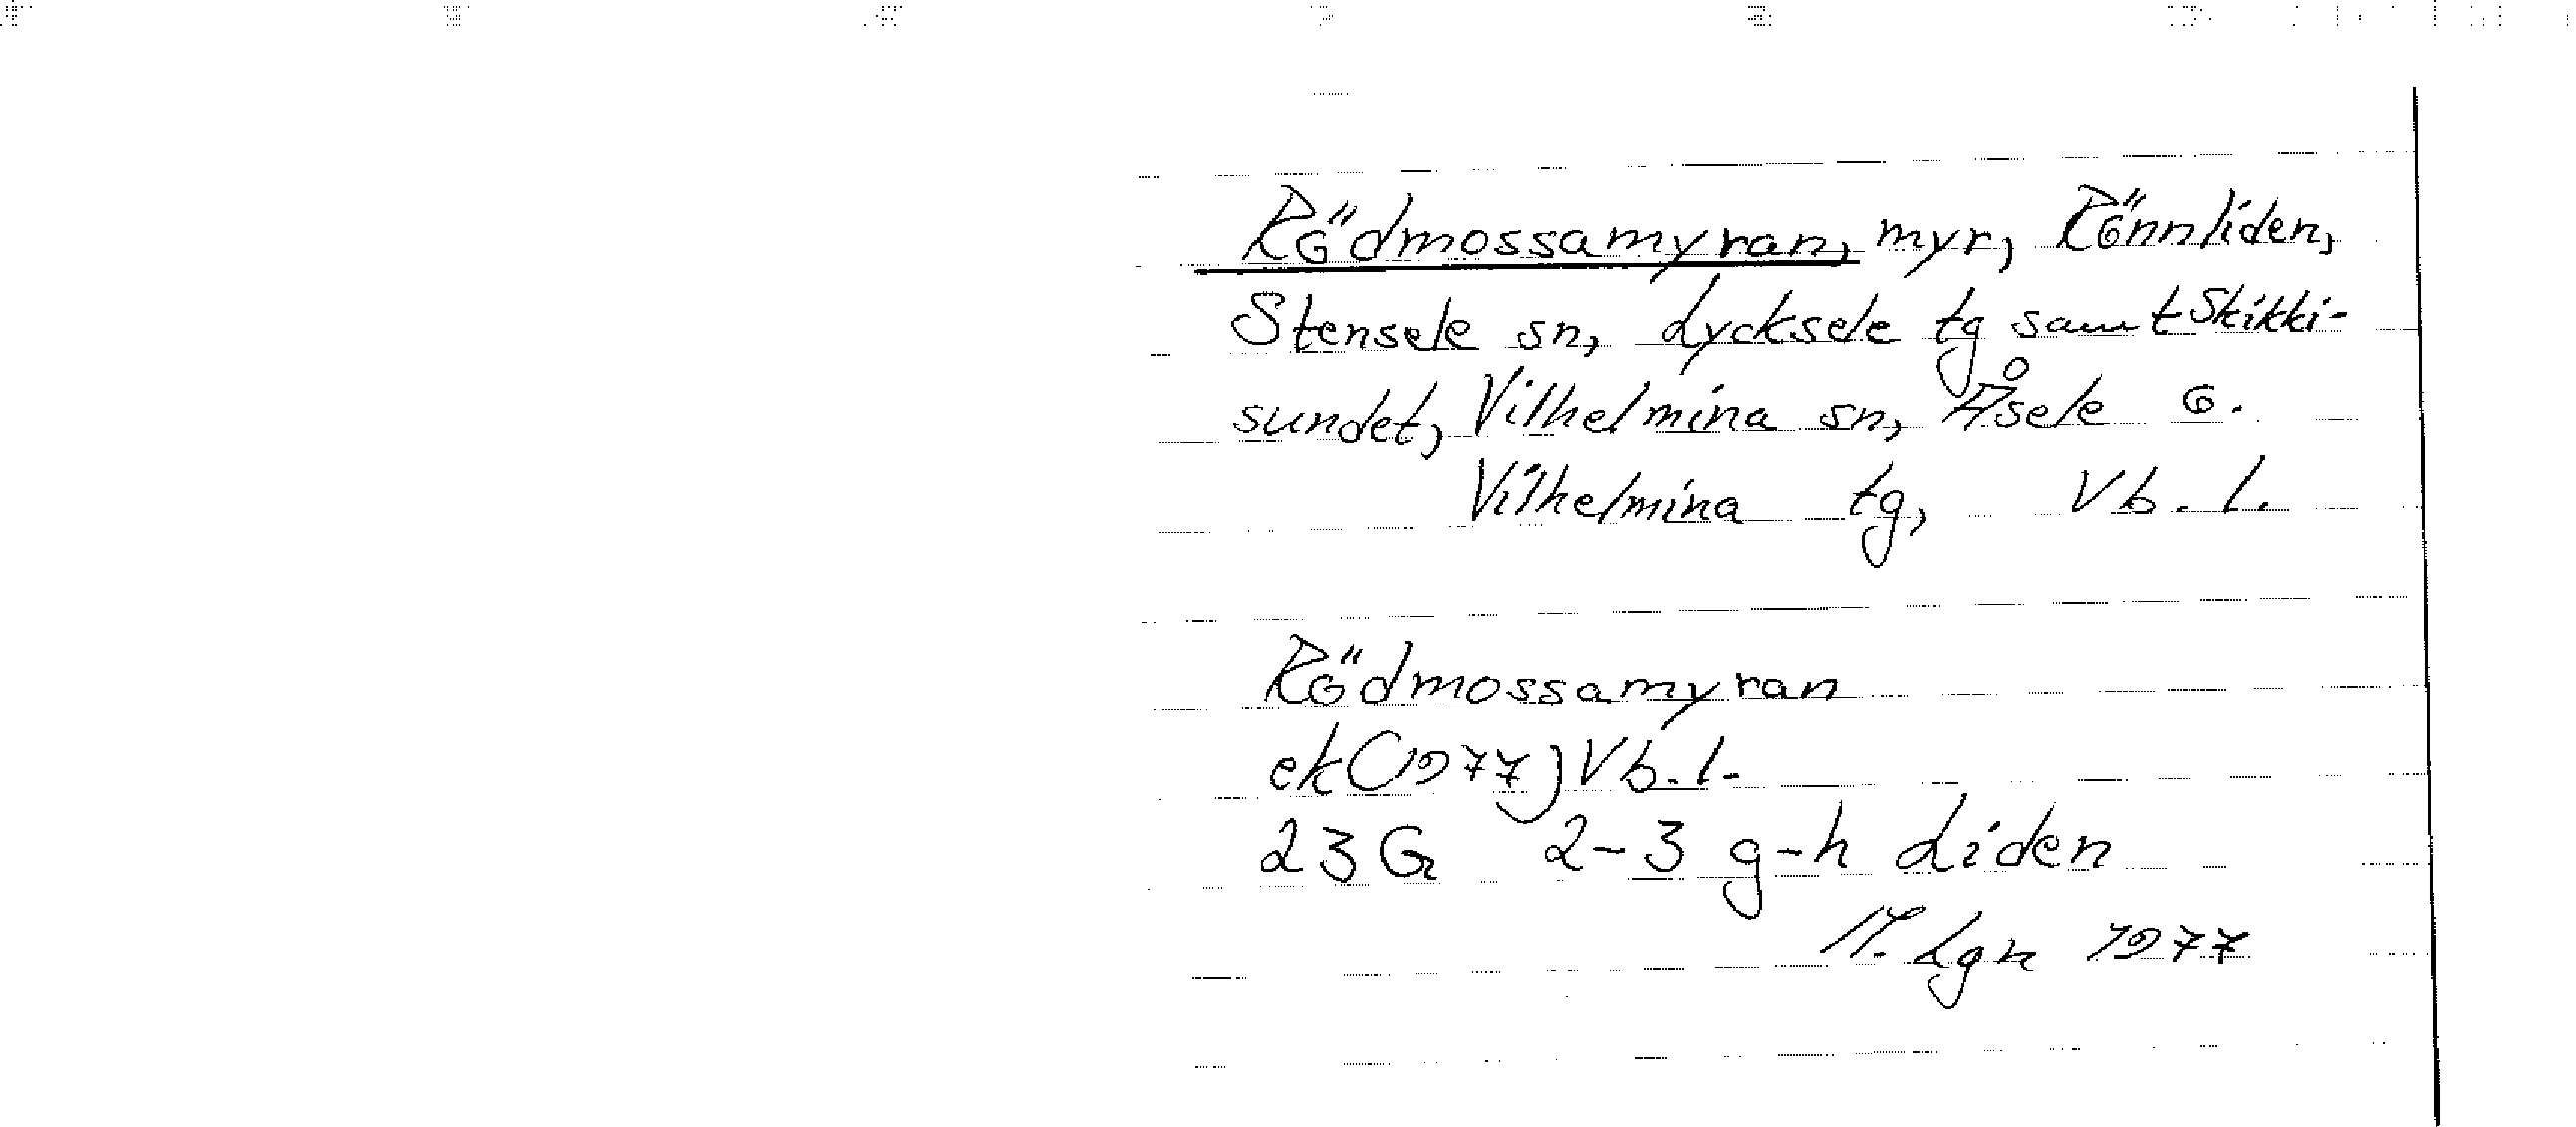 Rödmossamyran, myr, Rönnliden,
Stensele sn, Lycksele tg samt Skikki-
sundet, Vilhelmina sn, Åsele o.
Vilhelmina tg, Vb. l.
Rödmossamyran
ek (1977) Vb. l.
23 G 2-3 g-h Liden
M. Lgn 1977